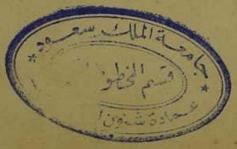 جامعة الملك سعود
قسم المخطو
عمادة شئون ا